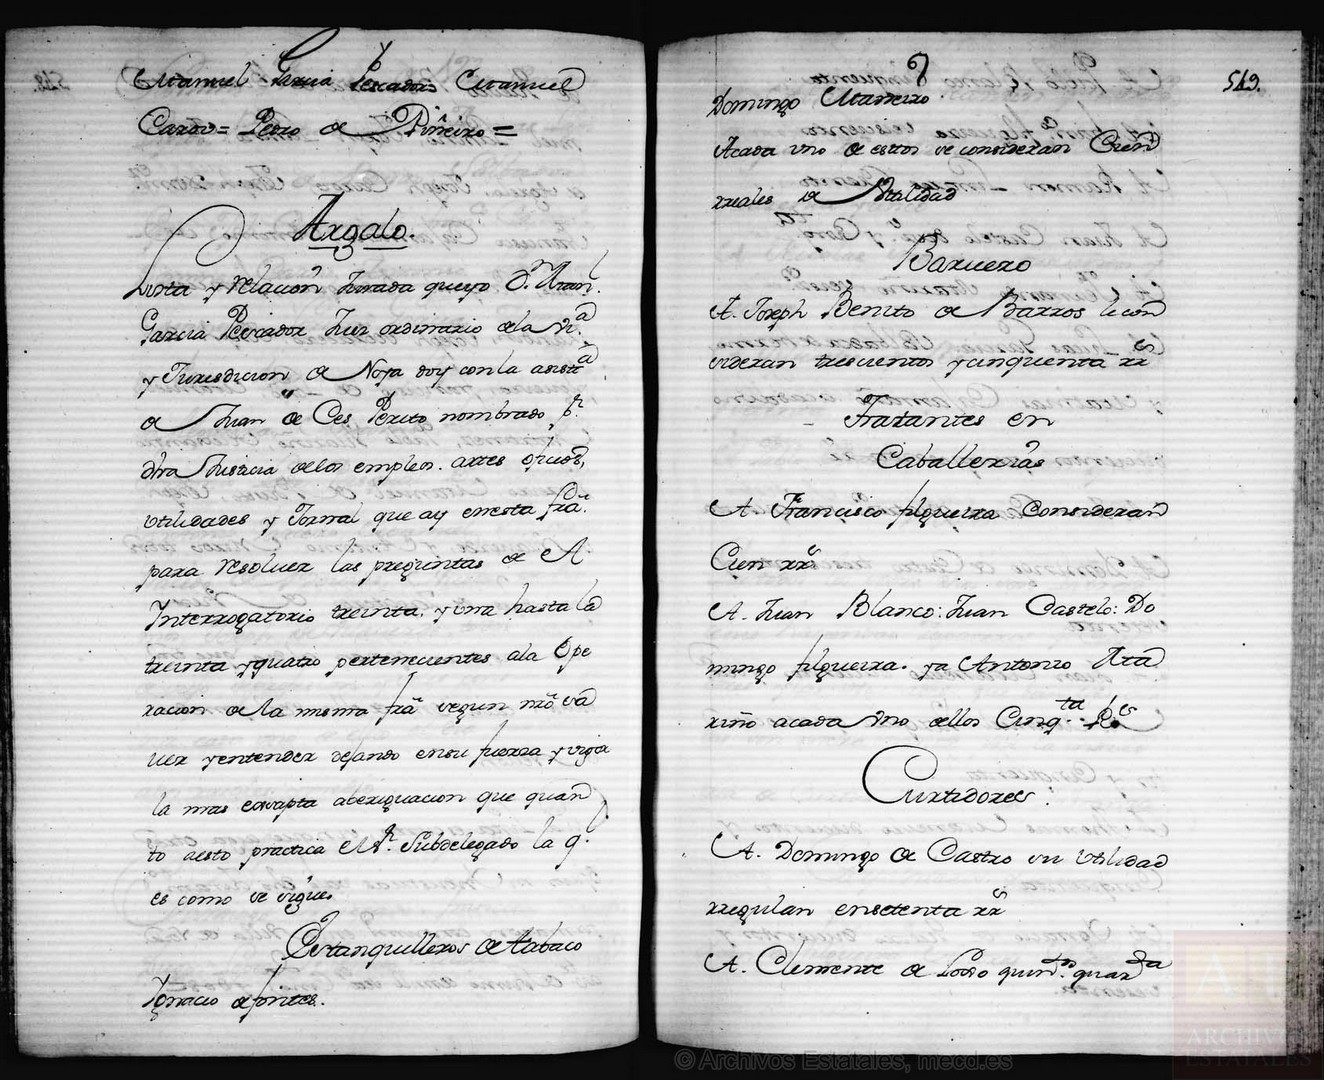 Manuel Garcia Pescador Manuel
Caro = Pedro de Piñeiro =
Argalo.
Lista y relacion Jurada que yo Dn. Man.l
Garcia Pescador Juez ordinario de la Va.
y Jurisdicion de Noya doy con la asista
de Juan de Ces Perito nombrado pr.
dha Justicia de los empleos. artes oficios,
utilidades y Jornal que ay en esta fra.
para resolver las preguntas de A
Ynterrogatorio treinta, y una hasta la
treinta y quatro pertenecientes ala Ope
racion de la misma fra segun nro sa
ver y entender dejando en su fuerza y vigor
la mas exsapta aberiguacion que quan
to aesto practica el Sr. Subdelegado la q.
es como se sigue.
Estanquilleros de Tabaco
Ygnacio de fontes.
549.
y
Domingo Marneiro
Acada uno de estos se consideran Cien
rreales de Utilidad
Barvero
A. Joseph Benito de Barros le con
sideran trescientos y cinquenta rrs
Tratantes en
Caballerias
A. Francisco filgueira Consideran
Cien rrs
A. Juan Blanco: Juan Castelo: Do
mingo filgueira. ya Antonio Ma
riño acada uno dellos Cinqta. Rs
Curtidores.
A. Domingo de Castro su Utilidad
rregulan ensetenta rrs
A. Clemente de quintos. quarta
© Archivos Estatales, mecd.es
ARCHIVOS
ESTATALES